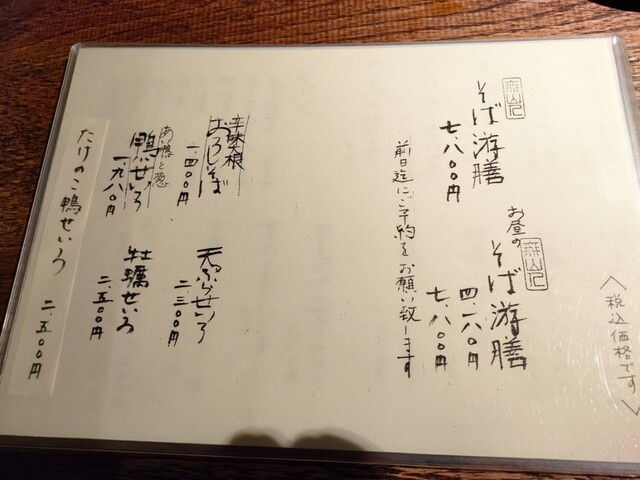 〈税込価格です〉
そば游膳
七.八〇〇円
お昼の
そば游膳
四.一八〇円
七.八〇〇円
前日迄にご予約をお願い致します
辛味大根
おろしそば
一.四〇〇円
天ぷらせいろ
二.三〇〇円
鴨せいろ
一.九八〇円
牡蠣せいろ
二.五〇〇円
たけのこ鴨せいろ 二.五〇〇円